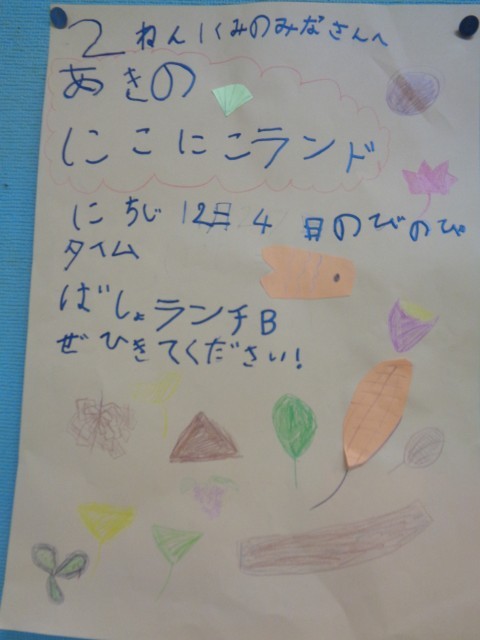 2ねん1くみのみなさんへ
あきの
にこにこランド
にちじ 12月 4日のびのび
タイム
ばしょランチB
ぜひきてください!